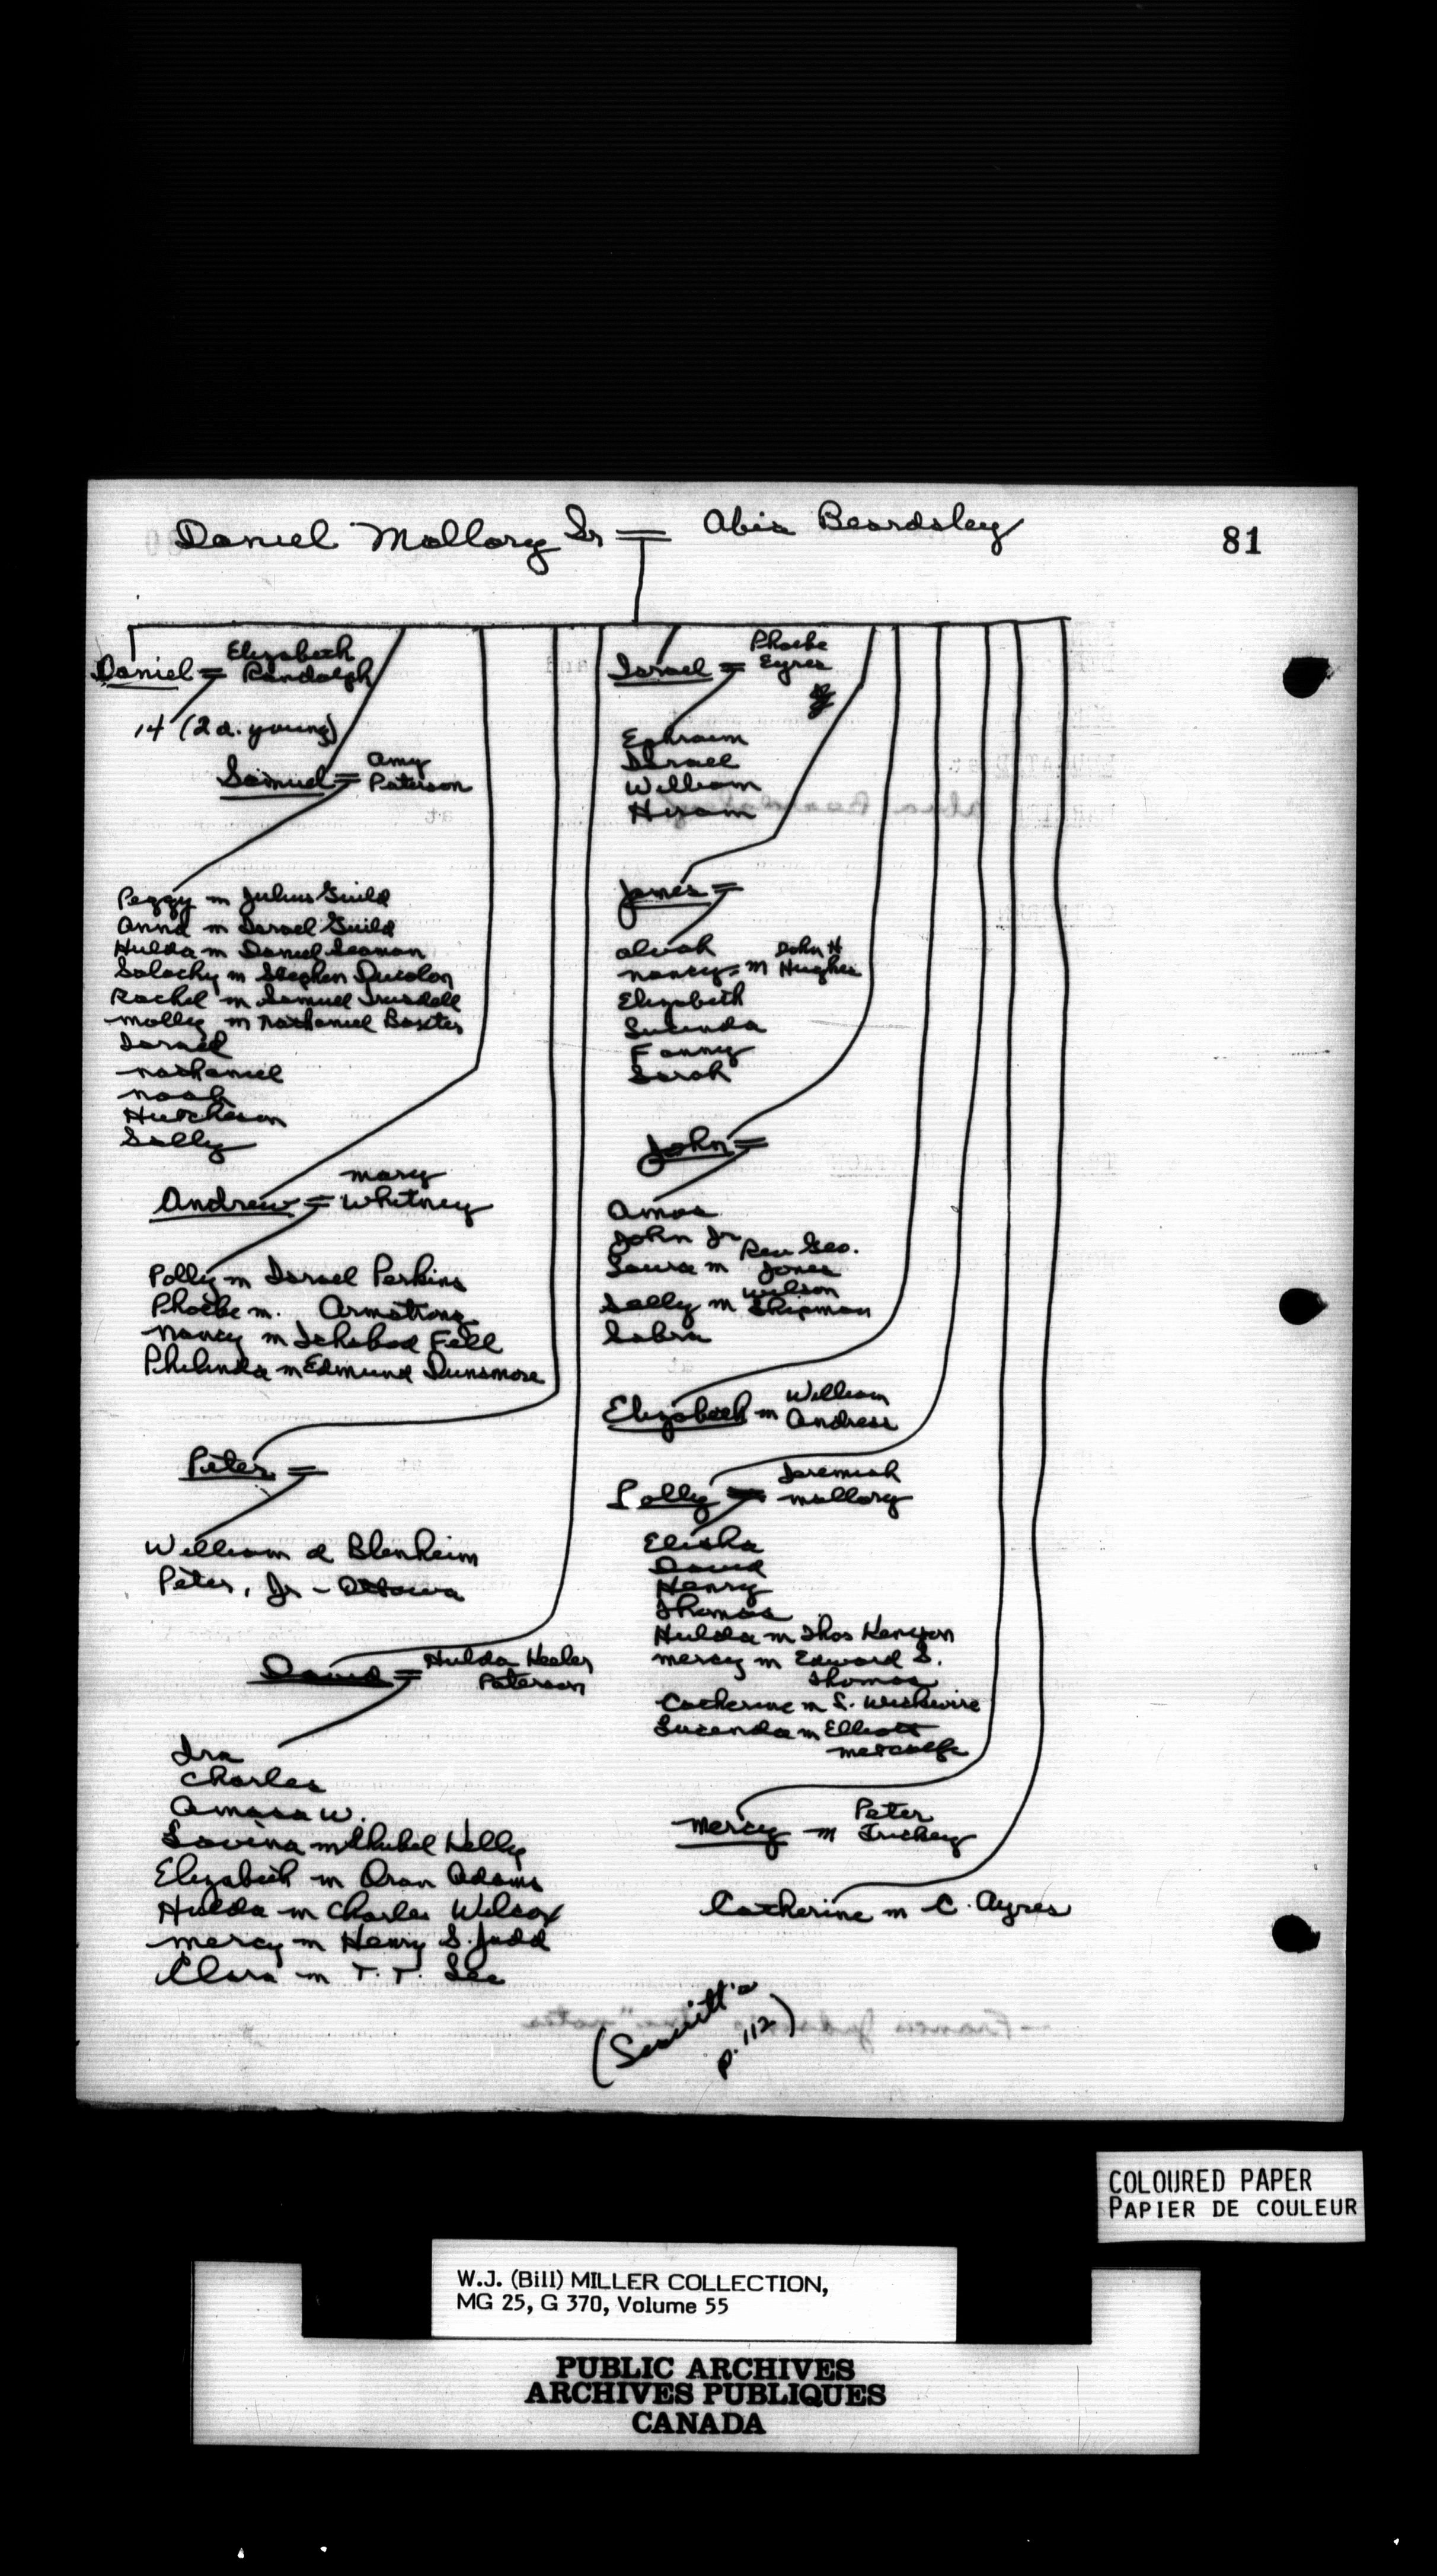 Daniel Mallory Sr = Abia Beardsley
81
Daniel = Elizabeth
Randolph
14 (2 d. young)
Samuel = Amy
Paterson
Peggy m Julius Guild
Anna m Israel Guild
Hulda m Daniel Seaman
m Stephen
Rachel m Samuel Trusdell
Molly m Nathaniel Baxter
Israel
Nathaniel
Noah
Hutcheson
Sally
Andrew = Mary
Whitney
Polly m Israel Perkins
Phoebe m. Armstrong
Nancy m Ichabod Fell
Philinda m Edmund Dunsmore
Peter =
William d Blenheim
Peter, Jr - Ottawa
David = Hulda Keeler
Paterson
Ira
Charles
Amasa W.
Lovina m Shubel Kelly
Elizabeth m Oran Adams
Hulda m Charles Wilcox
Mercy m Henry S. Judd
Clara m T. T. Lee
Israel = Phoebe
Eyres
Ephraim
Israel
William
Hiram
James =
Alvah
Nancy = m John H
Hughes
Elizabeth
Lucinda
Fanny
Sarah
John =
Amos
John Jr
Laura m Rev Geo.
Jones
Sally m Wilson
Shipman
Sabra
Elizabeth m William
Andress
Polly = Jeremiah
Mallory
Elisha
David
Henry
Thomas
Hulda m Thos Kenyon
Mercy m Edward S.
Thomas
Catherine m S. Wickwire
Lucenda m Elliott
Metcalfe
Mercy m Peter
Trickey
Catherine m C. Ayres
(Leavitt's
p. 112)
COLOURED PAPER
PAPIER DE COULEUR
W.J. (Bill) MILLER COLLECTION,
MG 25, G 370, Volume 55
PUBLIC ARCHIVES
ARCHIVES PUBLIQUES
CANADA